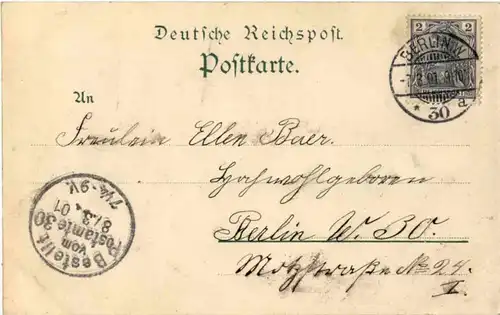 Deutsche Reichspost
Postkarte.
An
Fräulein Ellen Baer.
Hochwohlgeboren
Berlin W. 30.
Motzstraße No 24.
I.
2 2
BERLIN W.
* 30 a
Bestellt
vom
Postamte 30
8/3. 01
7¼-9V.